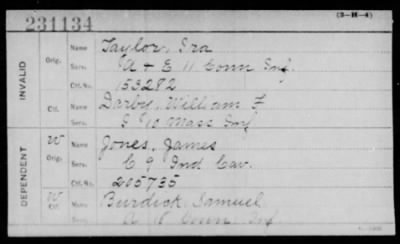 231134
(3-H-4)
INVALID
Orig. Name Taylor, Ira
Serv. A & E 11 Conn Inf.
Ctf. No. 153282
Ctf. Name Darby, William F
Serv. I 10 Mass Inf
DEPENDENT
W Orig. Name Jones, James
Serv. C 9 Ind Cav.
Ctf. No. 205735
W Ctf. Name Burdick, Samuel
Serv. A Conn Inf